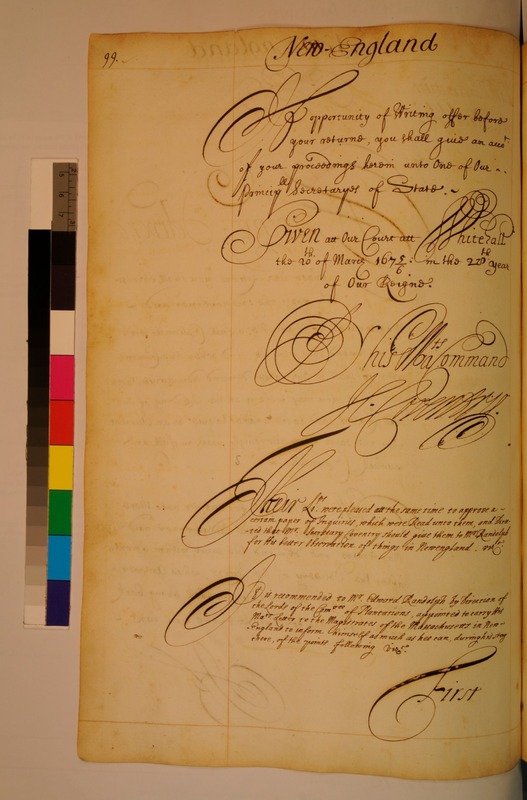 99.
New-England
If opportunity of Writing offer before
your returne, you shall give an acct
of your proceedings herein unto One of Our
Principll Secretaryes of State.
Given att Our Court att Whitehall
the 20th of March 1675/6. in the 28th year
of Our Reigne.
By his Mats Command
H. Coventry.
Their Lps: were pleased att the same time to approve a
certain paper of Inquiries, which were Read unto them, and Orde-
red that Mr. Secretary Coventry should give them to Mr Randolph
for His better Observation of things in Newengland. vizt.
It is recommended to Mr. Edward Randolph by Direction of
the Lords of the Comtee of Plantations, appointed to carry His
Mats Letter to the Magistrates of the Massachusets in New-
England to inform himself as much as hee can, during his stay
there, of the points following Vizt.
First